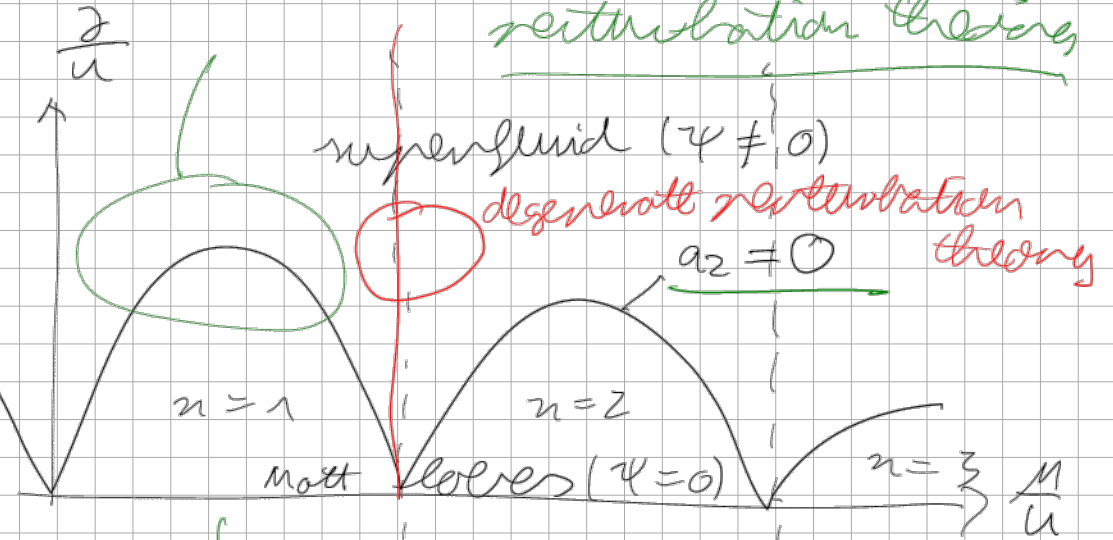 perturbation theory
J
U
superfluid (Ψ ≠ 0)
degenerate perturbation
theory
a₂ = 0
n = 1
n = 2
n = 3
Mott lobes (Ψ = 0)
μ
U